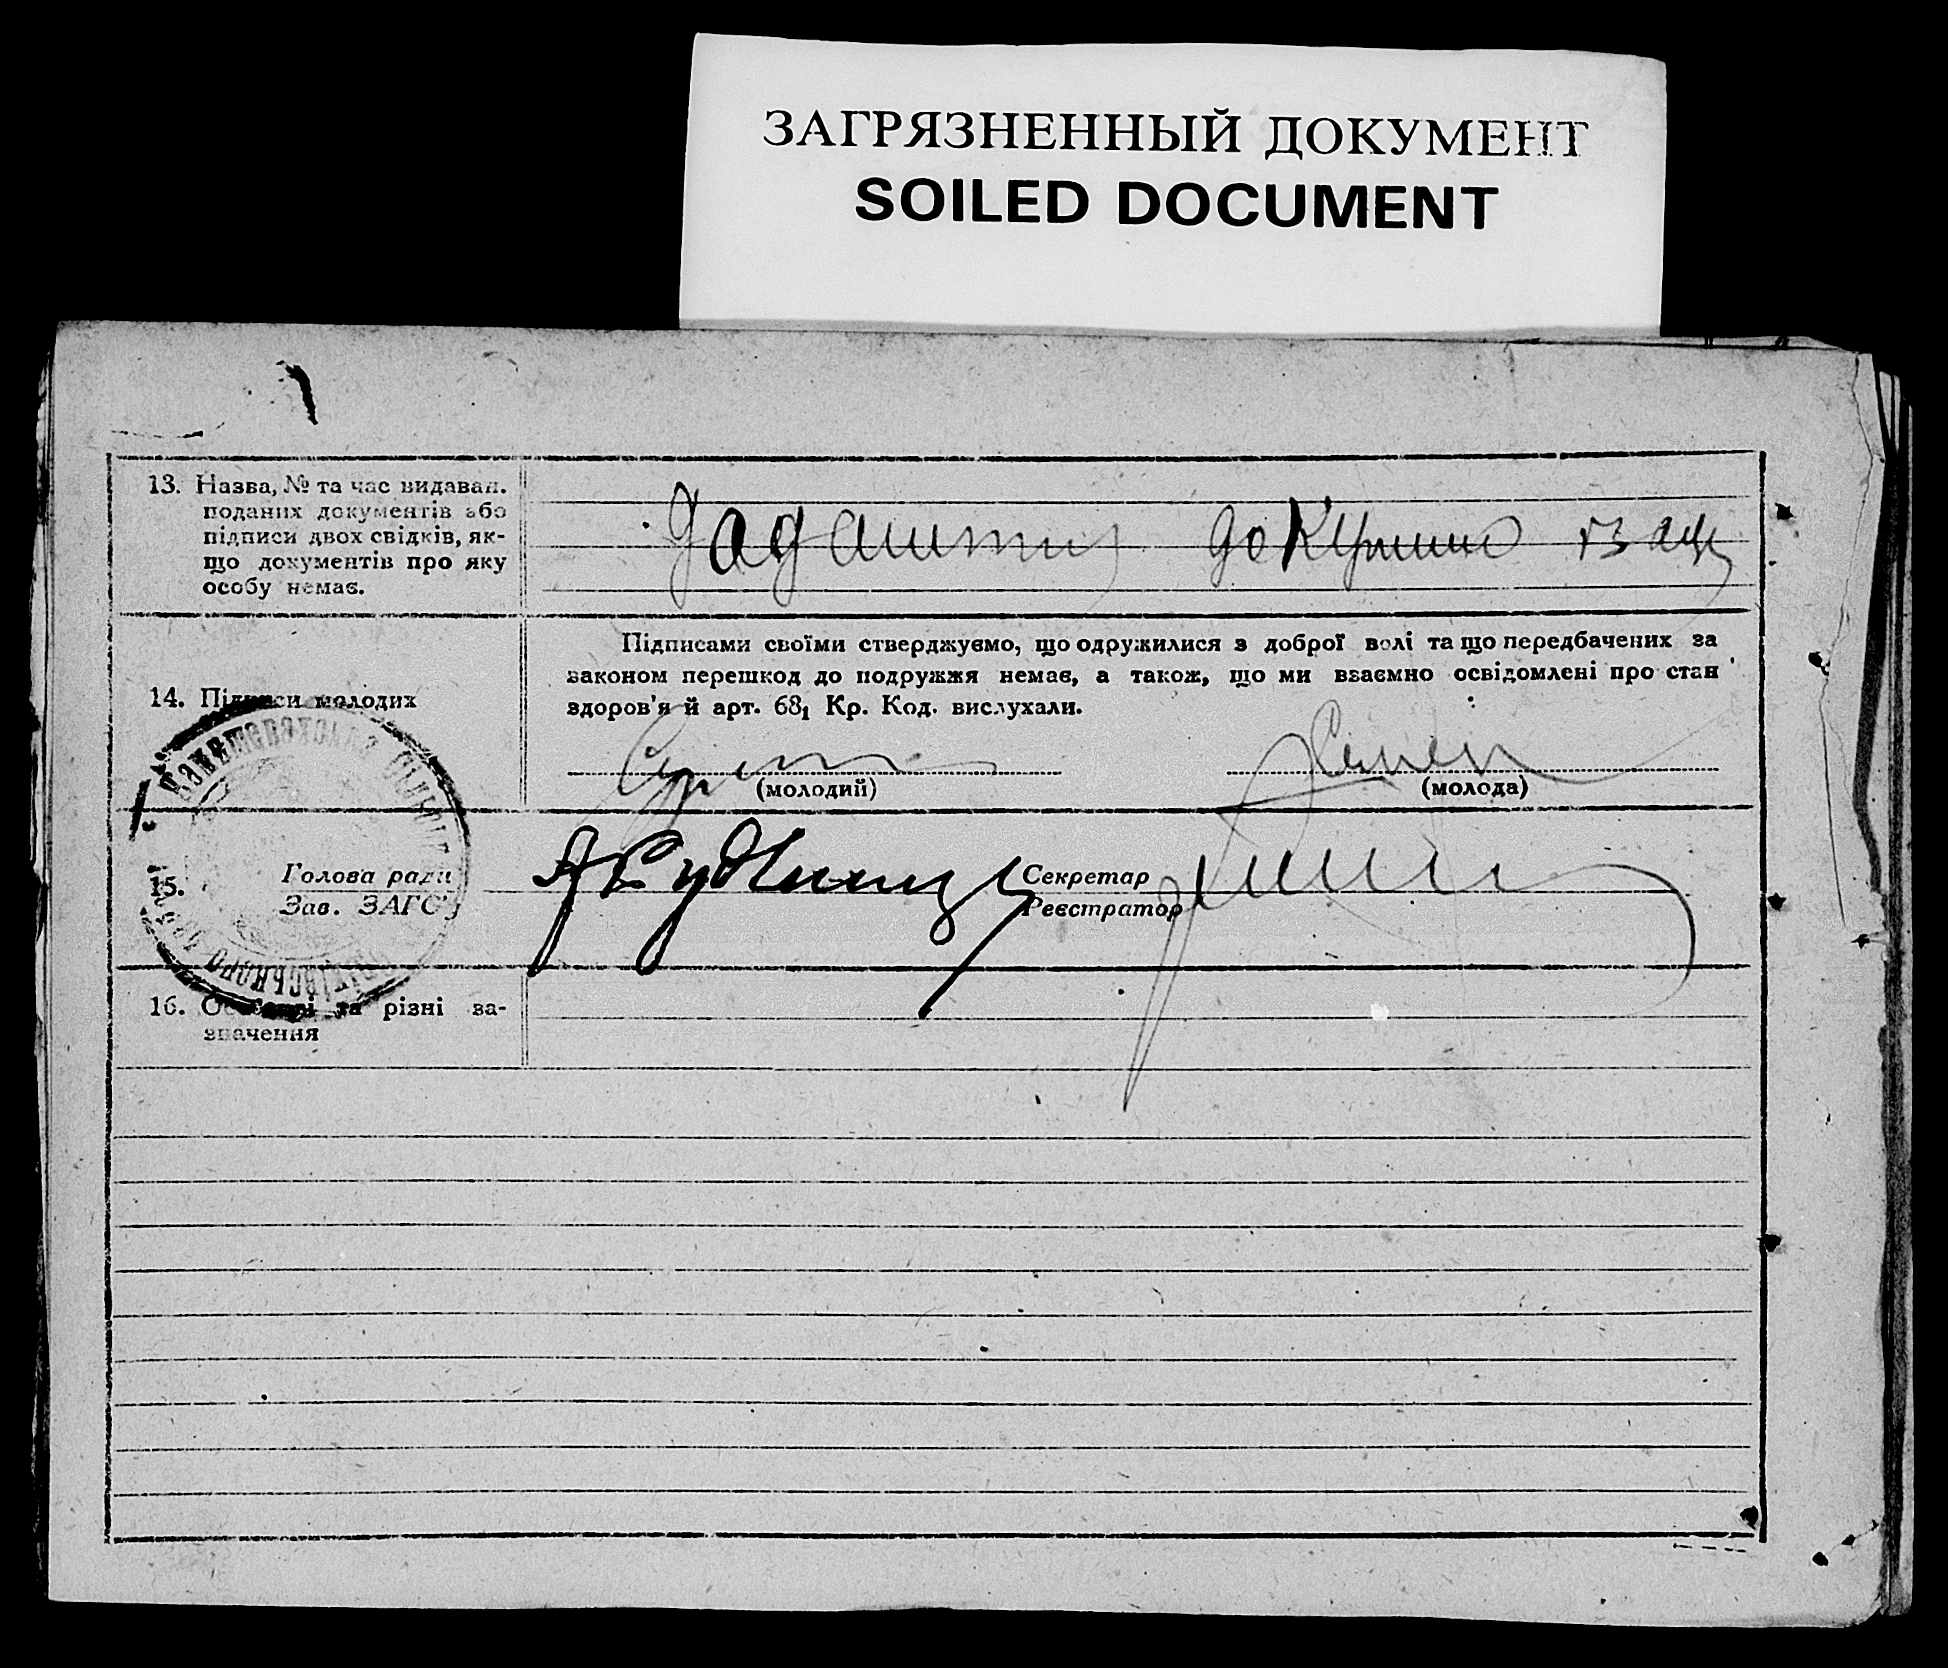 ЗАГРЯЗНЕННЫЙ ДОКУМЕНТ
SOILED DOCUMENT
13. Назва, № та час видаван.
поданих документів або
підписи двох свідків, як-
що документів про яку
особу немає.
Підписами своїми стверджуємо, що одружилися з доброї волі та що передбачених за
законом перешкод до подружжя немає, а також, що ми взаємно освідомлені про стан
здоров'я й арт. 68₁ Кр. Код. вислухали.
14. Підписи молодих
(молодий)
(молода)
15.
Голова ради
Зав. ЗАГС'у
Секретар
Реєстратор
16. Особливі та різні за-
значення